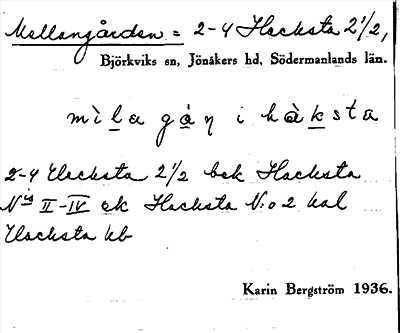 Mellangården = 2-4 Hacksta 2 1/2,
Björkviks sn, Jönåkers hd, Södermanlands län.
mìla gạ̀ṇ i hàksta
2-4 Hacksta 2 1/2 bek Hacksta
N:is II-IV ek Hacksta N:o 2 kal
Hacksta kb
Karin Bergström 1936.